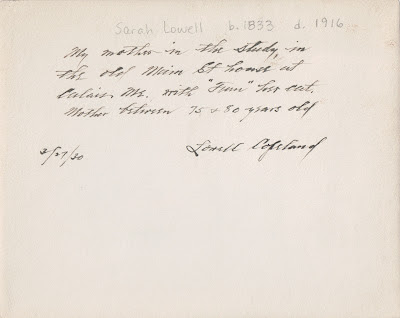 Sarah Lowell b. 1833 d. 1916
My mother in the study, in
the old Main St house at
Calais, Me. with "Fun" her cat.
Mother between 75 & 80 years old
2/27/30 Lowell Copeland